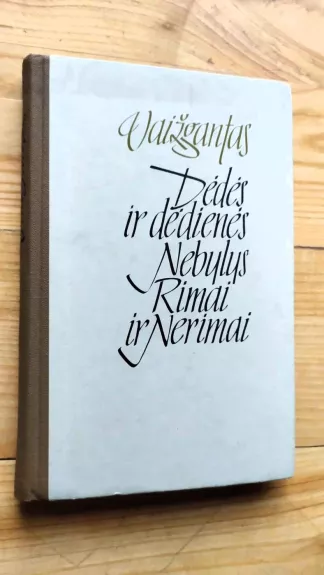 Vaižgantas
Dėdės
ir dėdienės
Nebylys
Rimai
ir Nerimai